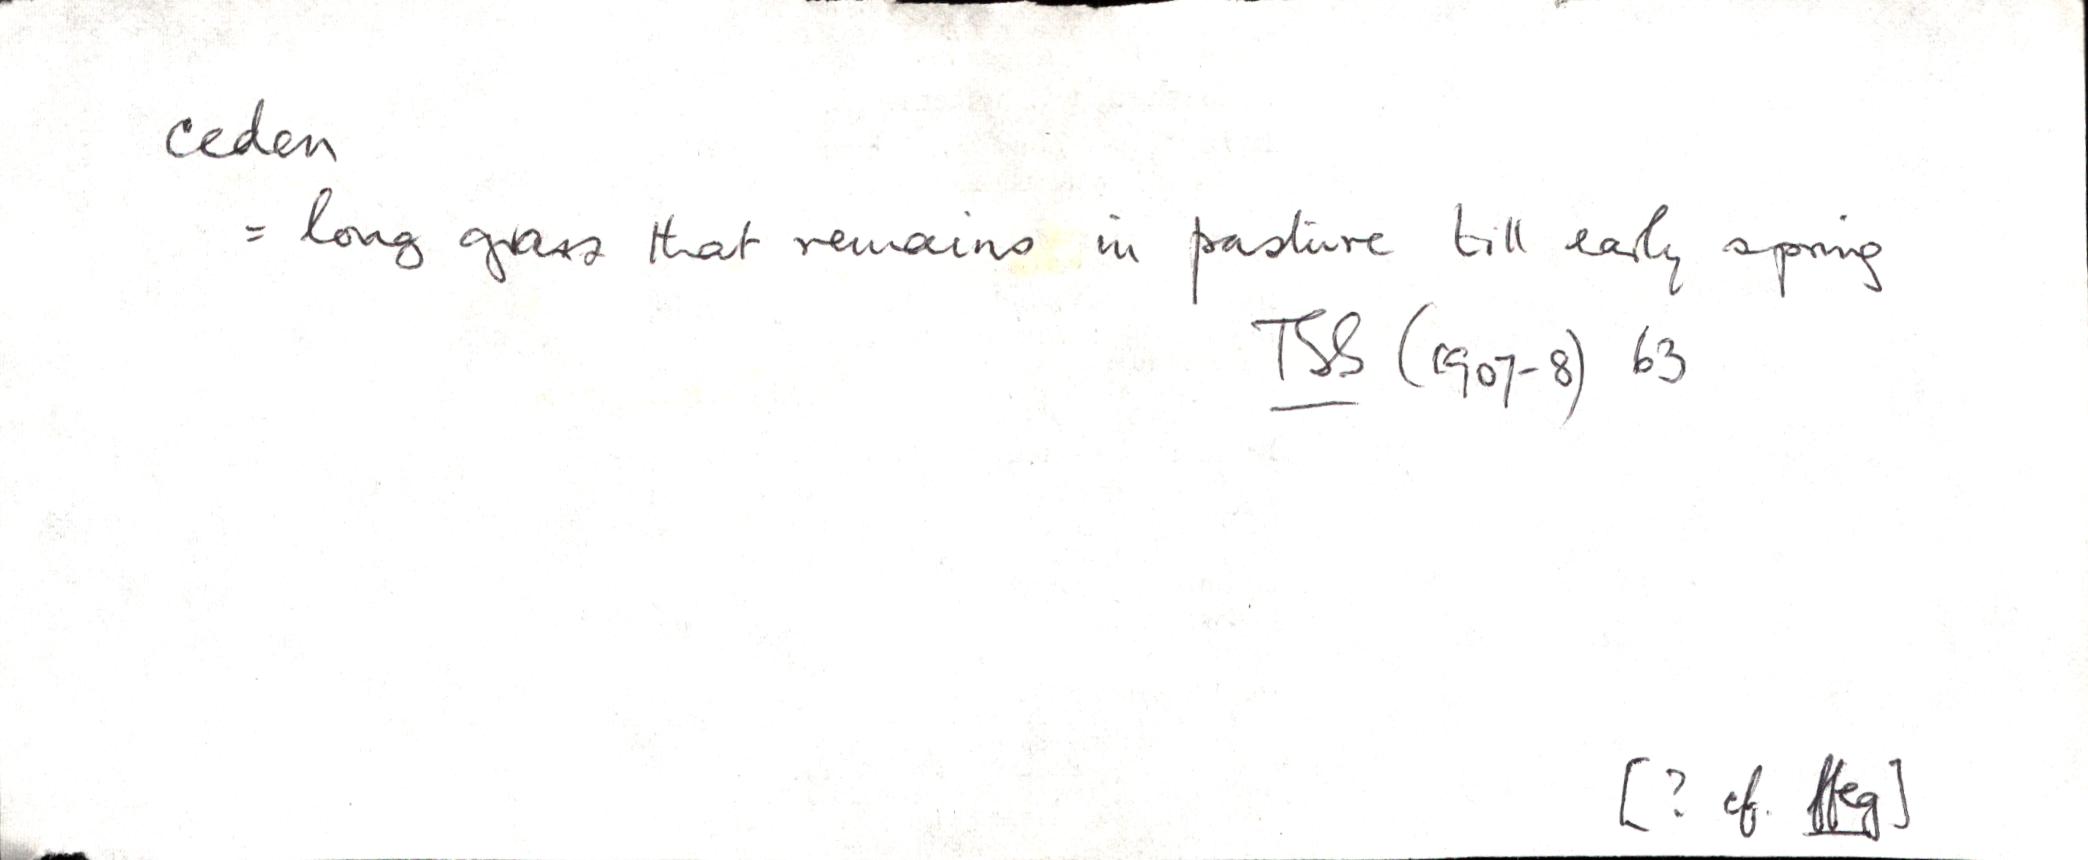 ceden
= long grass that remains in pasture till early spring
TSS (1907-8) 63
[? cf. ffeg]